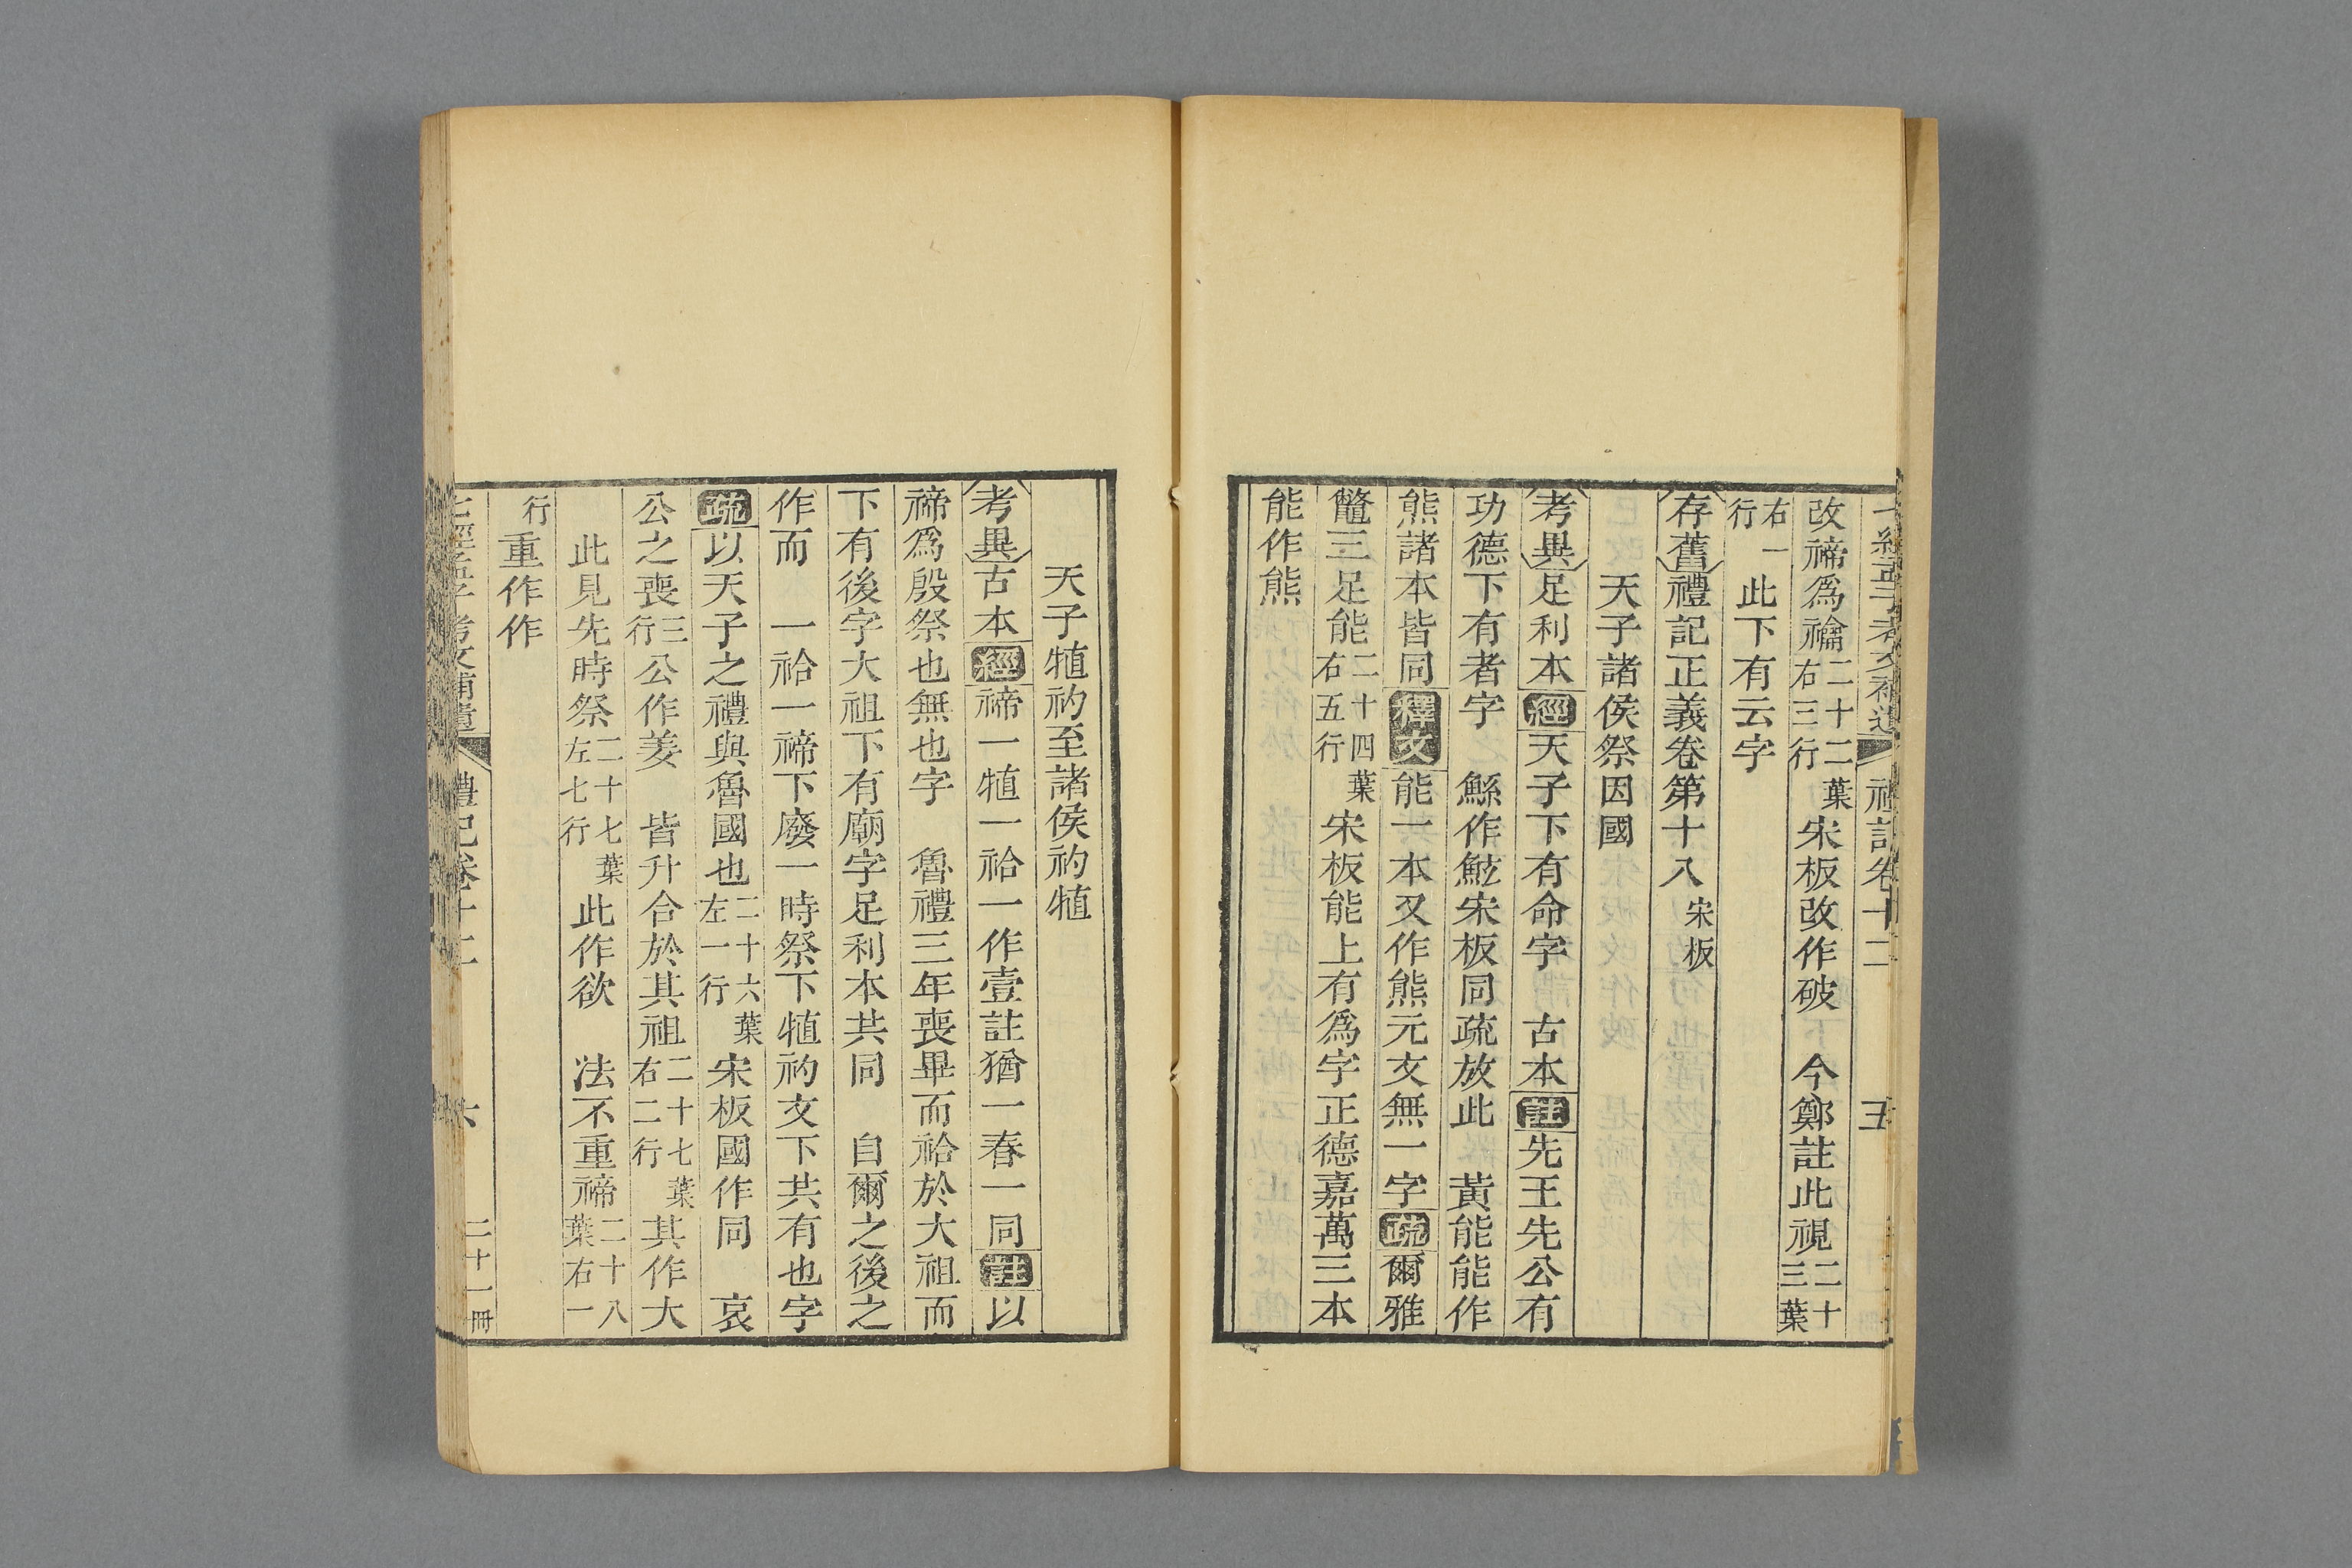 七經孟子考文補遺 禮記卷十二 五
改禘爲禴二十二葉右三行宋板改作破 今鄭註此視二十三葉
右一行此下有云字
存舊禮記正義卷第十八宋板
天子諸侯祭因國
考異足利本經天子下有命字 古本註先王先公有
功德下有者字 鯀作鮌宋板同疏放此 黃能能作
熊諸本皆同釋文能一本又作熊元文無一字疏爾雅
鼈三足能二十四葉右五行宋板能上有爲字正德嘉萬三本
能作熊
天子犆礿至諸侯礿犆
考異古本經禘一犆一祫一作壹註猶一春一同註以
禘爲殷祭也無也字 魯禮三年喪畢而祫於大祖而
下有後字大祖下有廟字足利本共同 自爾之後之
作而 一祫一禘下廢一時祭下犆礿文下共有也字
疏以天子之禮與魯國也二十六葉左一行宋板國作同 哀
公之喪三行公作姜 皆升合於其祖二十七葉右二行其作大
此見先時祭二十七葉左七行此作欲 法不重禘二十八葉右一
行重作作
七經孟子考文補遺 禮記卷十二 六 二十一冊